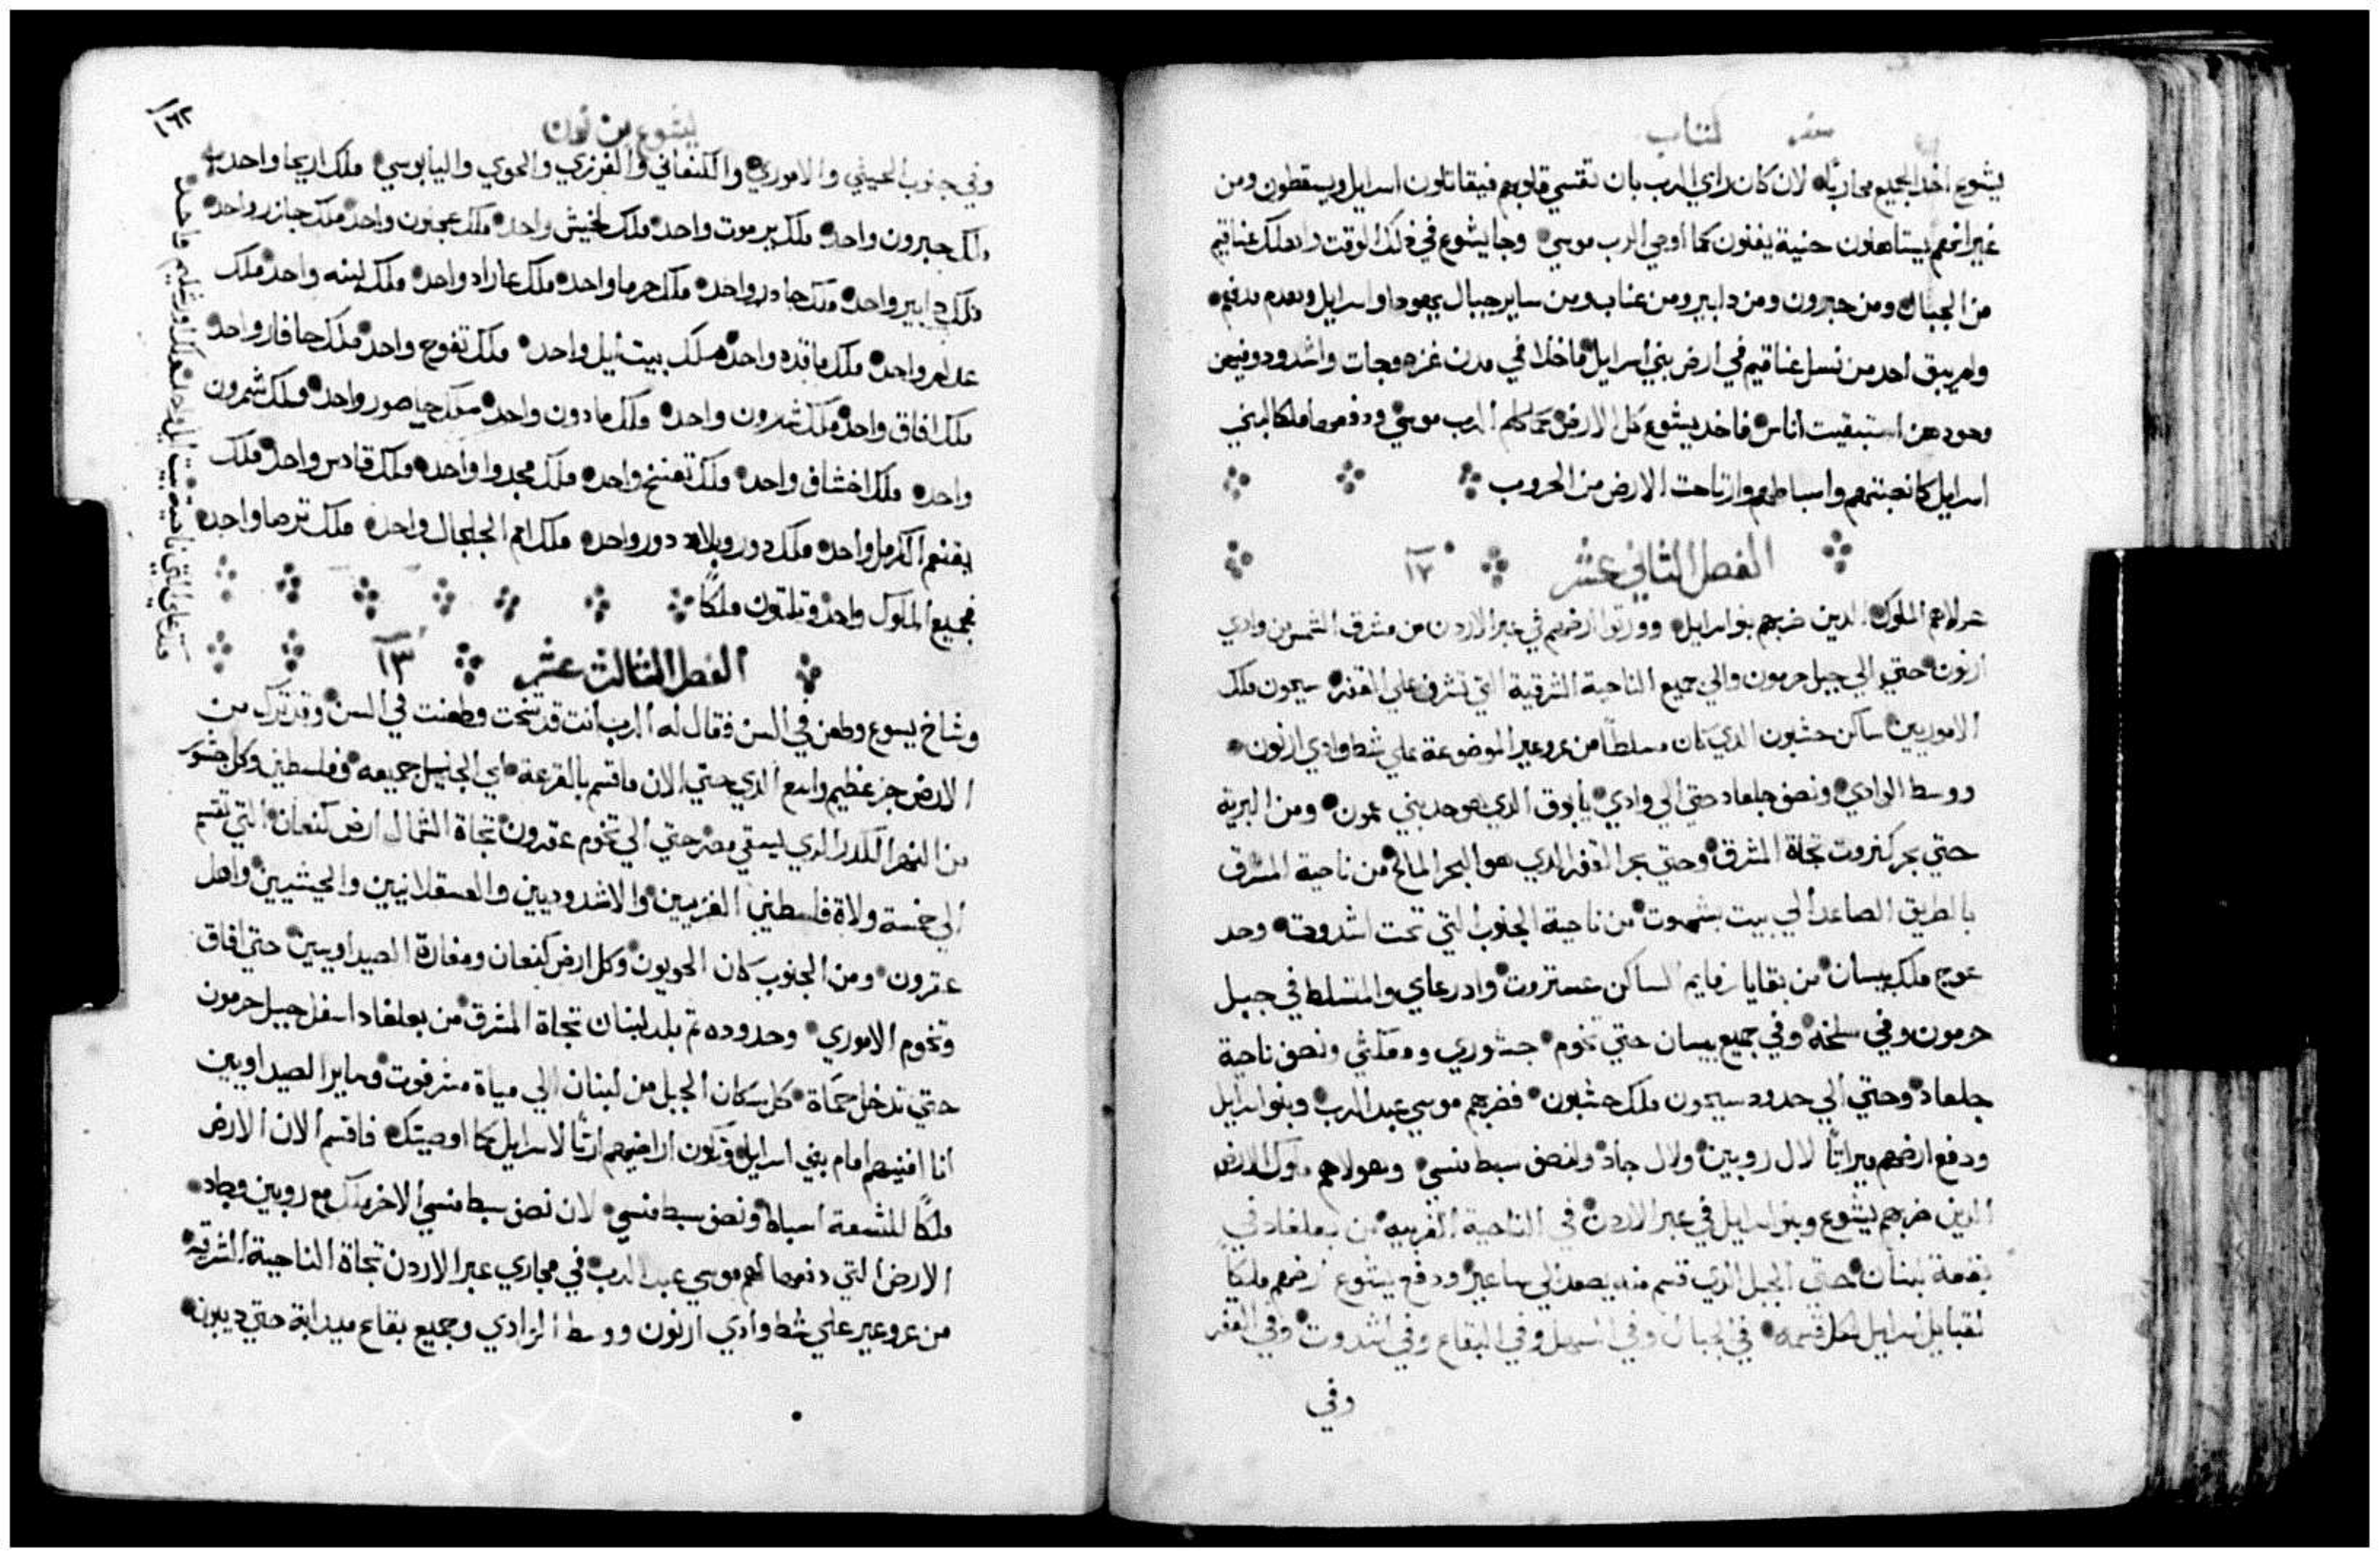 سفر كتاب
يشوع اخد الجميع محاربًه لان كان راي الرب بان تقسي قلوبهم فيقاتلون اسرايل ويسقطون ومن
غير انهم يستاهلون حنية يفنون كما اوصي الرب موسي وجا يشوع في ذلك الوقت واهلك عناقيم
من الجبال ومن حبرون ومن دابير ومن عناب ومن ساير جبال يهودا واسرايل وهدم مدنهم
ولم يبق احد من نسل عناقيم في ارض بني اسرايل ما خلا في مدن غزه وجات واشدود
استبقيت أناس فاخد يشوع كل الارض كما كلم الرب موسي ودفعها ملكا لبني
اسرايل كانصبتهم واسباطهم وارتاحت الارض من الحروب
الفصل الثاني عشر ١٢
هولاهم الملوك الدين ضربهم بنو اسرايل وورتوا ارضهم في عبر الاردن من مشرق الشمس من وادي
ارنون حتي الي جبل حرمون والي جميع الناحية الشرقية التي تشرف علي القفر سيحون ملك
الاموريين ساكن حشبون الدي كان مسلطًا من عروعير الموضوعة علي شط وادي ارنون
ووسط الوادي ونصف جلعاد حتي الي وادي يابوق الدي هو حد بني عمون ومن البرية
حتي بحر كنروت تجاة المشرق وحتي بحر القفر الدي هو البحر المالح من ناحية المشرق
بالطريق الصاعد الي بيت بشموت من ناحية الجنوب التي تحت اشدوت وحد
عوج ملك بيسان من بقايا رفايم الساكن عستروت وادرعاي والمتسلط في جبل
حرمون وفي سلخه وفي جميع بيسان حتي تخوم جشوري ومعكثي ونصف ناحية
جلعاد وحتي الي حدود سيحون ملك حشبون فضربهم موسي عبد الرب وبنو اسرايل
ودفع ارضهم ميراثًا لال روبين ولال جاد ولنصف سبط منسي وهولاهم ملوك الارض
الدين ضربهم يشوع وبنو اسرايل في عبر الاردن في الناحية الغربيه من بعلغاد في
بقعة لبنان حتي الجبل الدي قسم منه يصعد الي ساعير ودفع يشوع ارضهم ملكًا
لقبايل اسرايل لكل قسمه في الجبال وفي السهل وفي البقاع وفي اشدوت وفي القفر
وفي
يشوع بن نون
وفي جنوب الحيثي والاموري والكنعاني والفرزي والحوي واليابوسي ملك اريحا واحد
ملك حبرون واحد ملك يرموت واحد ملك لخيش واحد ملك عجلون واحد ملك جازر واحد
ملك دابير واحد ملك جادر واحد ملك حرما واحد ملك عاراد واحد ملك لبنه واحد ملك
عدلم واحد ملك ماقده واحد ملك بيت أيل واحد ملك تفوح واحد ملك حافار واحد
ملك افاق واحد ملك شرون واحد ملك مادون واحد ملك حاصور واحد وملك شمرون
واحد ملك اخشاف واحد ملك تعنخ واحد ملك مجدوا واحد وملك قادس واحد ملك
يقنم الكرمل واحد ملك دور وبلاد دور واحد ملك امم الجلجال واحد ملك ترصا واحد
فجميع الملوك واحد وتلتون ملكًا
الفصل الثالث عشر ١٣
وشاخ يسوع وطعن في السن فقال له الرب أنت قد شخت وطعنت في السن وقد ترك من
الارض جز عظيم واسع الدي حتي الان ما قسم بالقرعة اي الجليل جميعه وفلسطين وكل جشور
من النهر الكدر الدي يسقي مصر حتي الي تخوم عقرون تجاة الشمال ارض كنعان التي تقسم
الي خمسة ولاة فلسطين الغزيين والاشدوديين والعسقلانيين والجيثيين واهل
عقرون ومن الجنوب كان الحويون وكل ارض كنعان ومغارة الصيداويين حتي افاق
وتخوم الاموري وحدوده ثم بلد لبنان تجاة المشرق من بعلغاد اسفل جبل حرمون
حتي تدخل حماة كل سكان الجبل من لبنان الي مياة مشرفوت وساير الصيداويين
انا افنيهم امام بني اسرايل وتكون اراضيهم ارثًا لاسرايل كما اوصيتك فاقسم الان الارض
ملكًا للتسعة اسباط ونصف سبط منسي لان نصف سبط منسي الاخر ملك مع روبين وجاد
الارض التي دفعها لهم موسي عبد الرب في مجاري عبر الاردن تجاة الناحية الشرقيه
من عروعير علي شط وادي ارنون ووسط الوادي وجميع بقاع ميدابة حتي ديبون